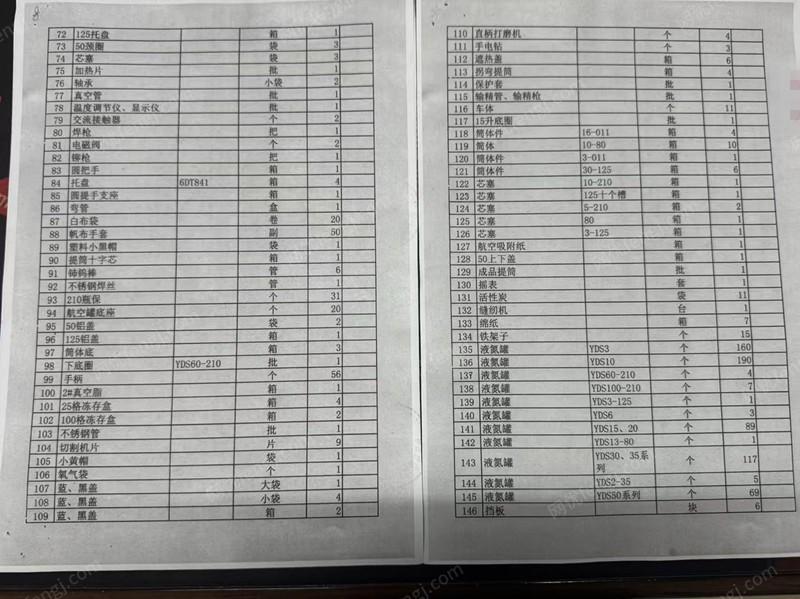 72 125托盘 箱 1
73 50颈圈 袋 3
74 芯塞 袋 3
75 加热片 批 1
76 轴承 小袋 2
77 真空管 批 1
78 温度调节仪、显示仪 批 1
79 交流接触器 个 2
80 焊枪 把 1
81 电磁阀 个 2
82 铆枪 把 1
83 圆把手 箱 1
84 托盘 6DT841 箱 4
85 圆提手支座 箱 1
86 弯管 盒 1
87 白布袋 卷 20
88 帆布手套 副 50
89 塑料小黑帽 袋 1
90 提筒十字芯 箱 1
91 铈钨棒 管 6
92 不锈钢焊丝 管 1
93 210瓶保 个 31
94 航空罐底座 个 20
95 50铝盖 袋 2
96 125铝盖 箱 1
97 筒体底 箱 3
98 下底圈 YDS60-210 批 1
99 手柄 个 56
100 2#真空脂 箱 1
101 25格冻存盒 箱 4
102 100格冻存盒 箱 2
103 不锈钢管 批 1
104 切割机片 片 9
105 小黄帽 袋 1
106 氧气袋 个 1
107 蓝、黑盖 大袋 1
108 蓝、黑盖 小袋 4
109 蓝、黑盖 箱 2
110 直柄打磨机 个 4
111 手电钻 个 3
112 遮热盖 箱 6
113 拐弯提筒 箱 4
114 保护套 批 1
115 输精管、输精枪 批 1
116 车体 个 11
117 15升底圈 批 1
118 筒体件 16-011 箱 4
119 筒体 10-80 箱 10
120 筒体件 3-011 箱 1
121 筒体件 30-125 箱 6
122 芯塞 10-210 箱 1
123 芯塞 125十个槽 箱 1
124 芯塞 5-210 箱 2
125 芯塞 80 箱 1
126 芯塞 3-125 箱 1
127 航空吸附纸 箱 1
128 50上下盖 箱 1
129 成品提筒 批 1
130 摇表 套 1
131 活性炭 袋 11
132 缝纫机 台 1
133 绵纸 箱 7
134 铁架子 个 15
135 液氮罐 YDS3 个 160
136 液氮罐 YDS10 个 190
137 液氮罐 YDS60-210 个 4
138 液氮罐 YDS100-210 个 7
139 液氮罐 YDS3-125 个 1
140 液氮罐 YDS6 个 3
141 液氮罐 YDS15、20 个 89
142 液氮罐 YDS13-80 个 1
143 液氮罐 YDS30、35系列 个 117
144 液氮罐 YDS2-35 个 5
145 液氮罐 YDS50系列 个 69
146 挡板 块 6